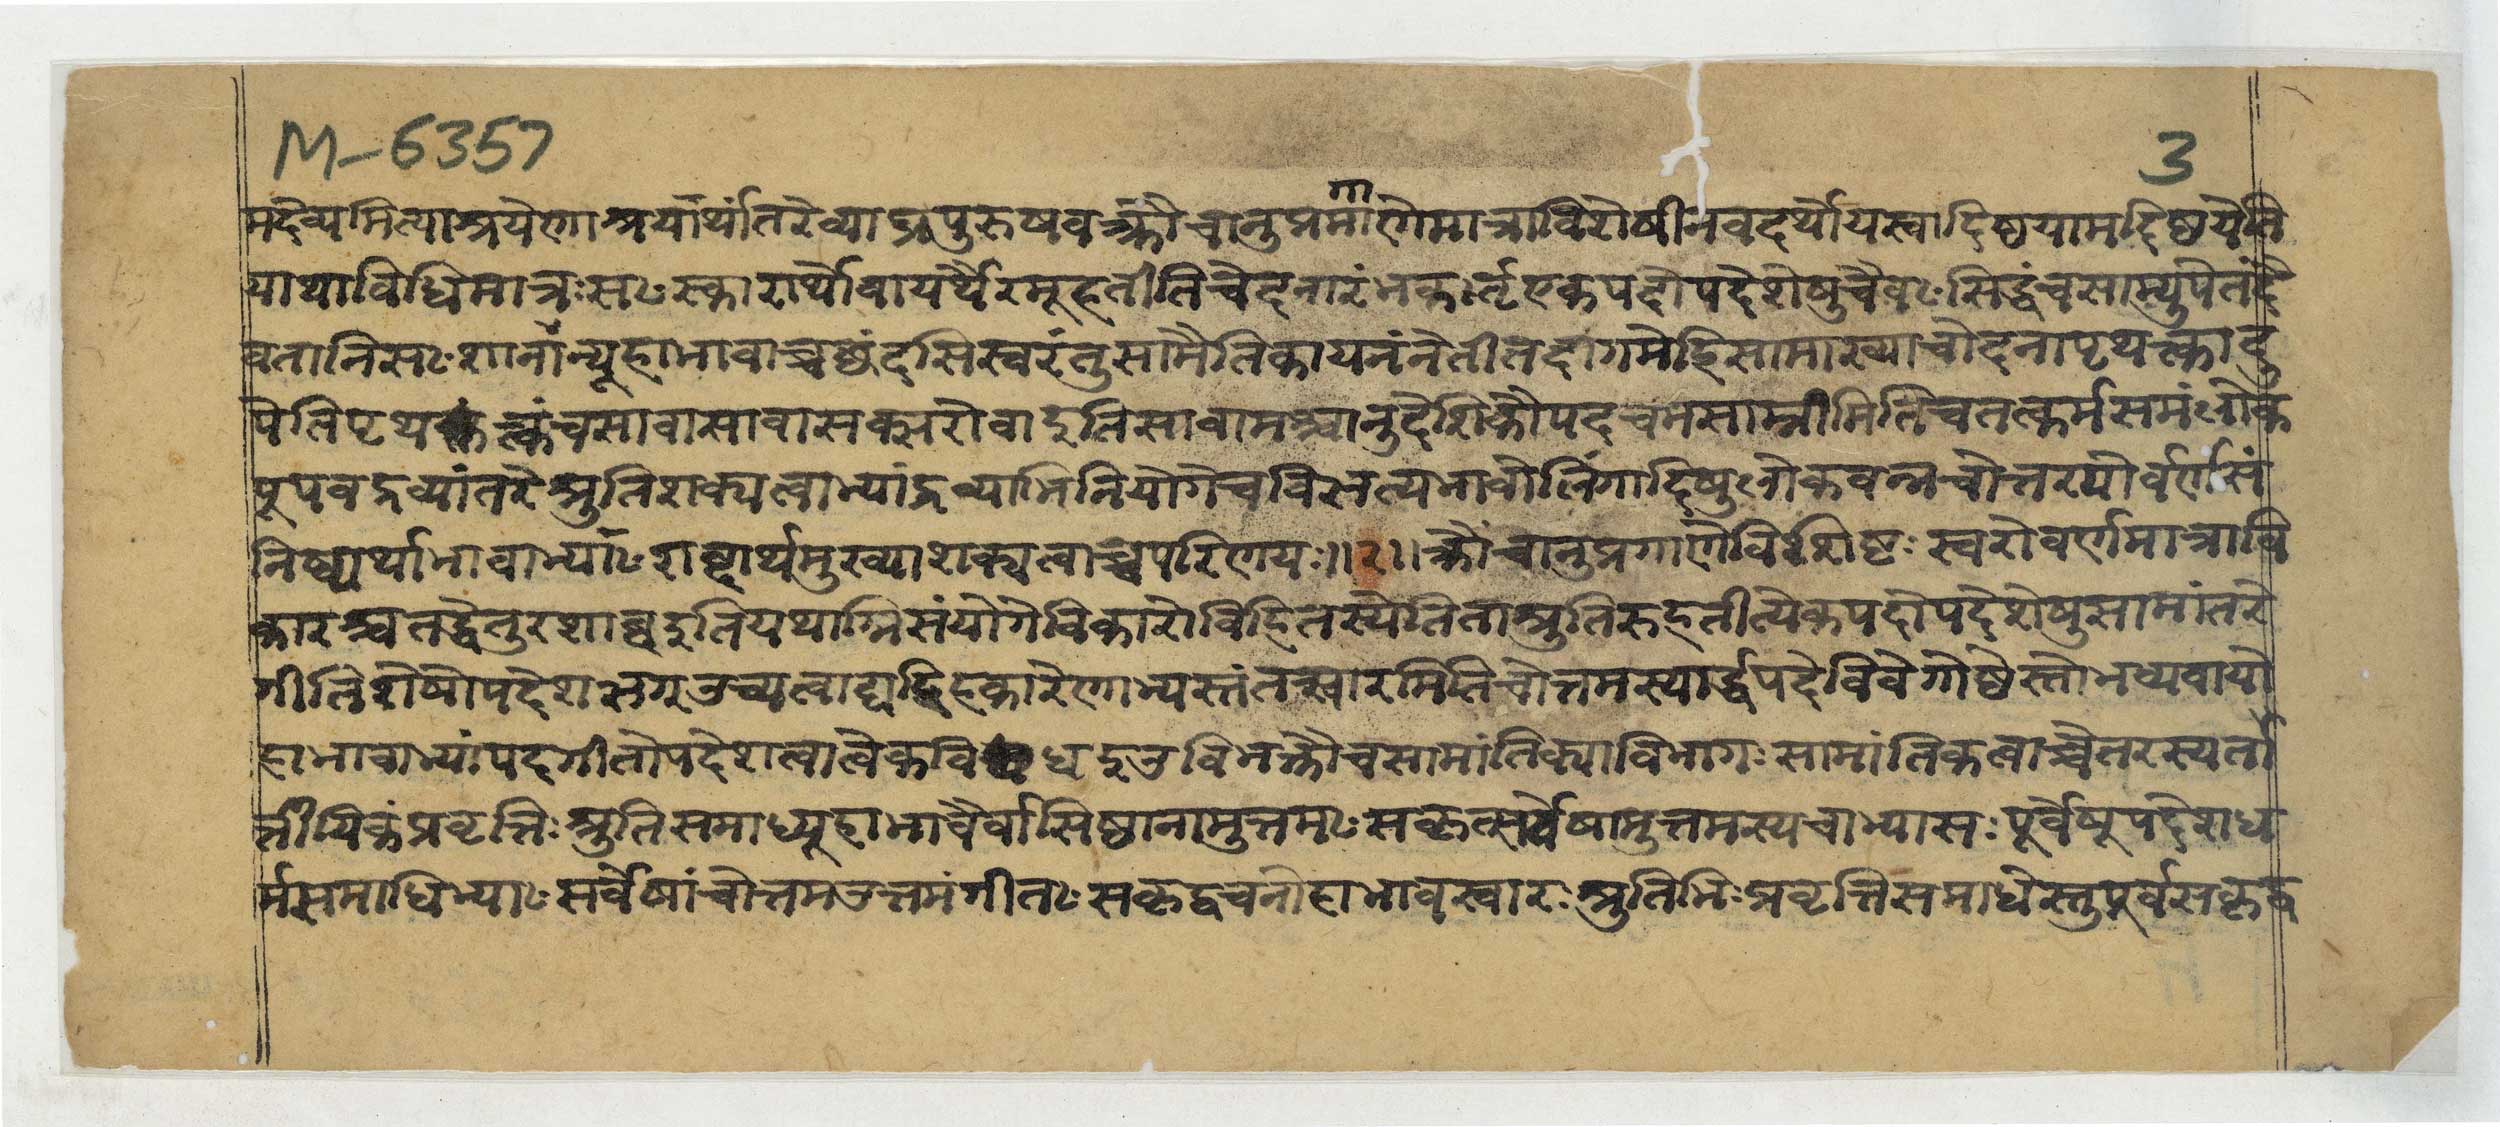 M-6357
3
मदैव्यमित्याश्रयेणाश्रर्यार्थंतिरेव्याघ्रपुरुषवत्क्रौचानुप्रमाणेमात्राविशेषीनवदर्थोयस्वादिष्ठयामदिष्ठयेति
गा
याथाविधिमात्रःसꣳस्कारार्थोवायर्थैरमूहतीतिचेदनारंभकर्तृएकपदोपदेशेषुचैवꣳसिद्धंचसाम्युपेतंदे
वतानिसꣳशानांन्यूहाभावाच्चछंदसिस्वरंतुसामैतिकायनंनेतीतदागमेहिसामाख्याचोदनापृथक्त्वादु
पेतिपृथक्त्वंचसावासावासकॢसरोवादुतिसावामश्चानुदेशिकौपदचमसाम्नीमितिचतत्कर्मसमंलोक
पूपवद्रव्यांतरेश्रुतिशक्यत्वाभ्यांद्रव्याभिनियोगेचविसृत्यभावोलिंगादिषुलोकवन्नचोत्तरयोर्वर्णसं
निध्यार्थाभावाभ्याꣳशब्दार्थमुख्याशक्यत्वाच्चपरिणयः॥२॥क्रौंचानुप्रगाणेविशिष्टःस्वरोवर्णमात्रावि
कारश्चतद्धेतुरशाब्ददुतियथाग्निसंयोगेविकारोविहितस्येतिताश्रुतिरुहतीत्येकपदोपदेशेषुसामांतरे
गीतिशेषोपदेशसगउच्यत्वाद्वाद्दिहकारेणाभ्यस्तंतत्स्वारमितिचोत्तमस्यार्द्धपदेविवेगोष्ठेस्तोभव्यवायो
हाभावाभ्यांपदगीतोपदेशत्वात्वेकविधदुउविभक्तौचसामांतिक्याविभागःसामांतिकत्वाच्चेतरस्यर्तौ
र्त्तीयिकंप्रवृत्तिःश्रुतिसमाध्यूहाभावैर्वासिष्ठानामुत्तमꣳसकृत्सर्वेषामुत्तमस्यचाभ्यासःपूर्वेषूपदेशध
र्मसमाधिभ्याꣳसर्वेषांचोत्तमउत्तमंगीतꣳसकृद्वचनोहाभावस्वारःश्रुतिभिःप्रवृत्तिसमाधेस्तुपूर्वसकृद्व